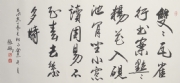 雙〻瓦雀
行書案點〻
楊花入硯
池閒坐小窗
讀周易不
知春去幾
多時